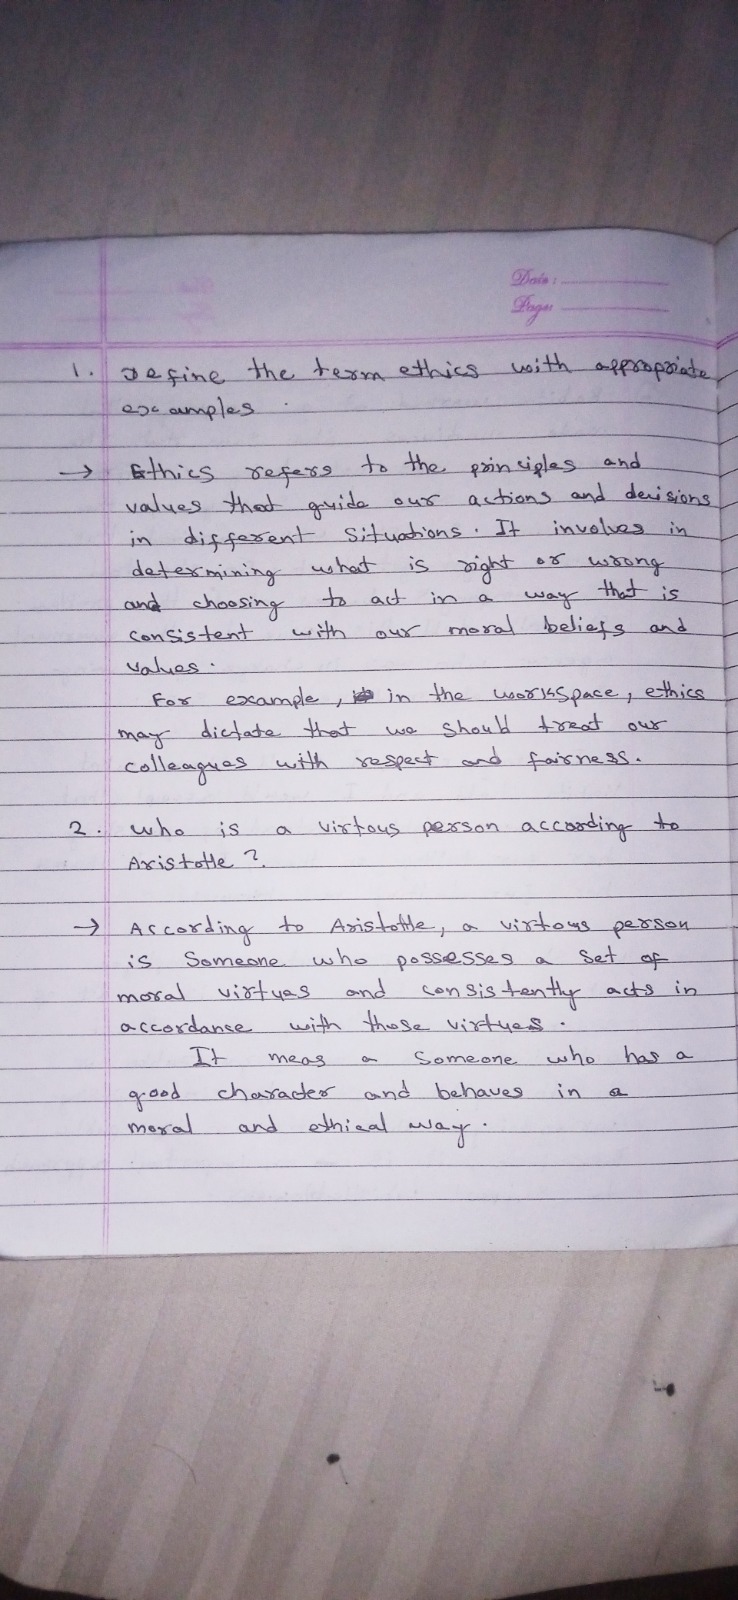 Date:
Page:
1. Define the term ethics with appropriate
examples.
→ Ethics refers to the principles and
values that guide our actions and decisions
in different situations. It involves in
determining what is right or wrong
and choosing to act in a way that is
consistent with our moral beliefs and
values.
For example, in the workspace, ethics
may dictate that we should treat our
colleagues with respect and fairness.
2. who is a virtous person according to
Aristotle?
→ According to Aristotle, a virtous person
is someone who possesses a set of
moral virtues and consistently acts in
accordance with those virtues.
It meas a someone who has a
good character and behaves in a
moral and ethical way.